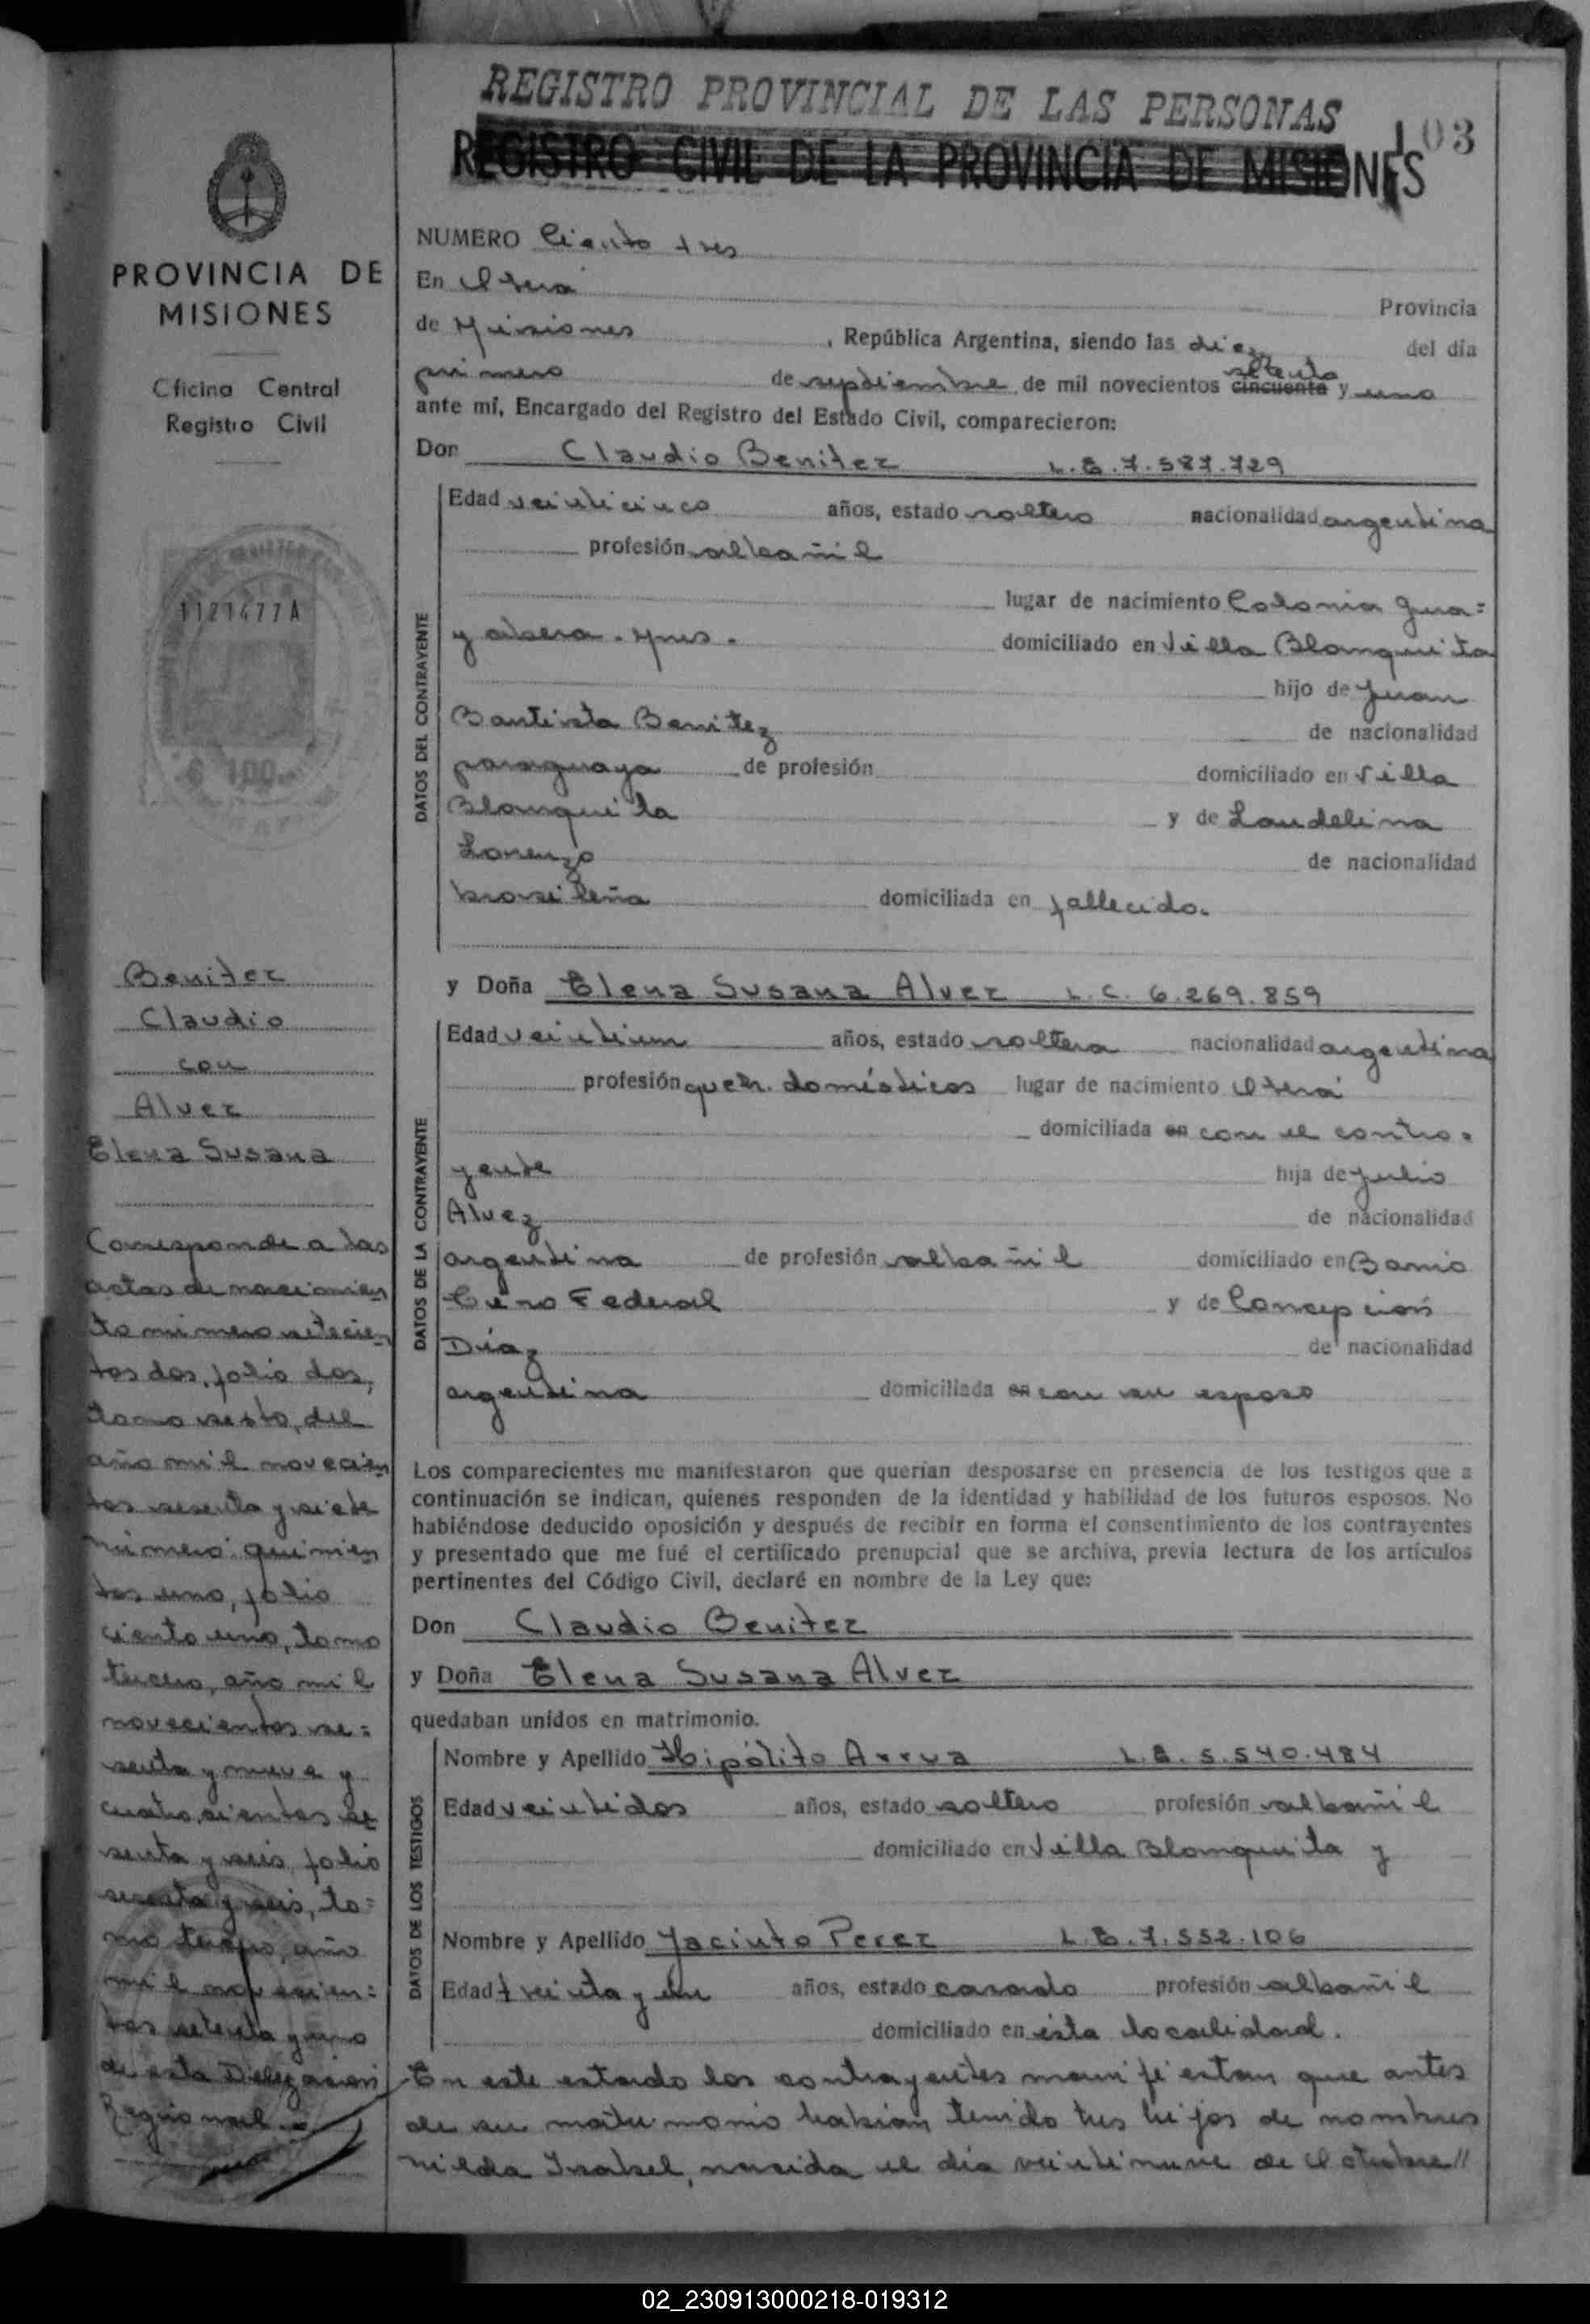 REGISTRO PROVINCIAL DE LAS PERSONAS
REGISTRO CIVIL DE LA PROVINCIA DE MISIONES
103
PROVINCIA DE
MISIONES
Oficina Central
Registro Civil
1121477A
$ 100
Benitez
Claudio
con
Alvez
Elena Susana
Corresponde a las
actas de nacimien
to número setecien
tos dos, folio dos,
tomo sexto, del
año mil novecien
tos sesenta y siete
número quinien
tos uno, folio
ciento uno, tomo
tercero, año mil
novecientos se=
senta y nueve y
cuatrocientos se
senta y seis, folio
sesenta y seis, to=
mo tercero, año
mil novecien=
tos setenta y uno
de esta Delegación
Regional.-
NUMERO Ciento tres
En Oberá Provincia
de Misiones , República Argentina, siendo las diez del día
primero de septiembre de mil novecientos cincuenta setenta y uno
ante mí, Encargado del Registro del Estado Civil, comparecieron:
Don Claudio Benitez L.E. 7.587.729
DATOS DEL CONTRAYENTE
Edad veinticinco años, estado soltero nacionalidad argentina
profesión albañil
lugar de nacimiento Colonia Gua=
yabera. Mnes. domiciliado en Villa Blanquita
hijo de Juan
Bautista Benitez de nacionalidad
paraguaya de profesión domiciliado en Villa
Blanquita y de Laudelina
Lorenzo de nacionalidad
brasileña domiciliada en fallecida.
y Doña Elena Susana Alvez L.C. 6.269.859
DATOS DE LA CONTRAYENTE
Edad veintiun años, estado soltera nacionalidad argentina
profesión queh. domésticos lugar de nacimiento Oberá
domiciliada en con el contra=
yente hija de Julio
Alvez de nacionalidad
argentina de profesión albañil domiciliado en Barrio
Cerro Federal y de Concepción
Díaz de nacionalidad
argentina domiciliada en con su esposo
Los comparecientes me manifestaron que querían desposarse en presencia de los testigos que a
continuación se indican, quienes responden de la identidad y habilidad de los futuros esposos. No
habiéndose deducido oposición y después de recibir en forma el consentimiento de los contrayentes
y presentado que me fué el certificado prenupcial que se archiva, previa lectura de los artículos
pertinentes del Código Civil, declaré en nombre de la Ley que:
Don Claudio Benitez
y Doña Elena Susana Alvez
quedaban unidos en matrimonio.
DATOS DE LOS TESTIGOS
Nombre y Apellido Hipólito Arrua L.E. 5.540.484
Edad veintidos años, estado soltero profesión albañil
domiciliado en Villa Blanquita y
Nombre y Apellido Jacinto Perez L.E. 7.552.106
Edad treinta y un años, estado casado profesión albañil
domiciliado en ésta localidad.
En este estado los contrayentes manifiestan que antes
de su matrimonio habían tenido tres hijos de nombres
Nilda Isabel, nacida el día veintinueve de Octubre//
02_230913000218-019312